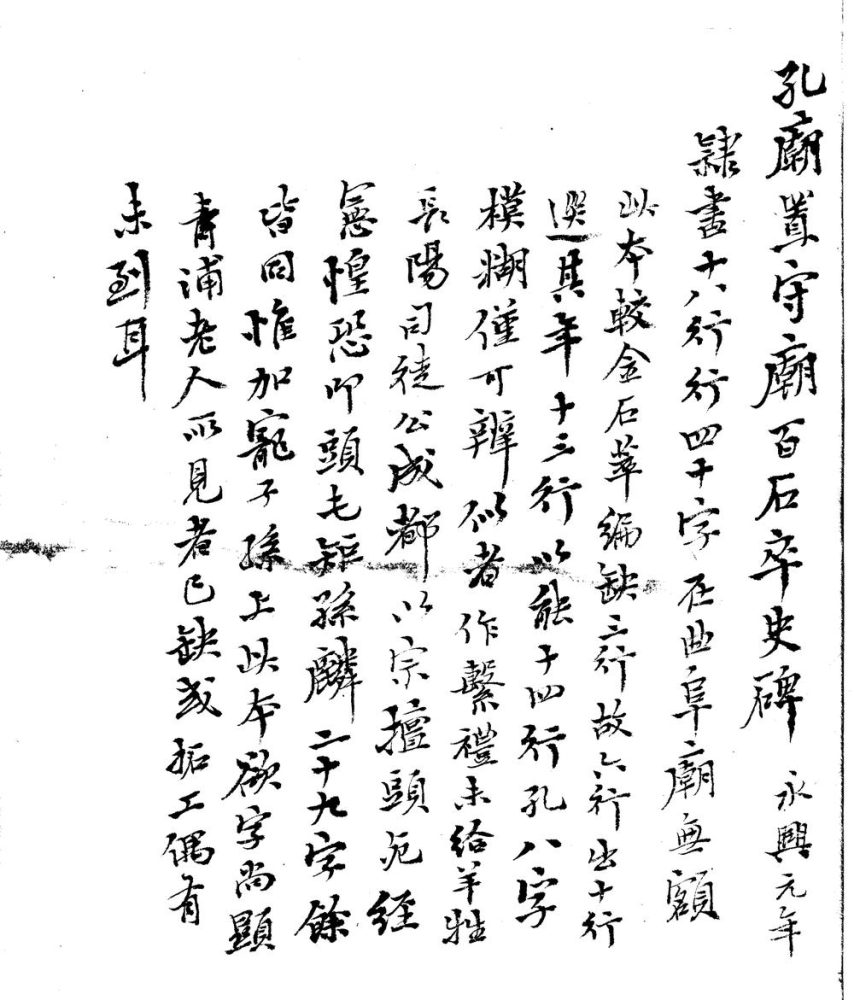 孔廟置守廟百石卒史碑 永興元年
隸書十八行行四十字在曲阜廟無額
此本較金石萃編缺三行故六行出十行
選其年十三行以能十四行孔八字
模糊僅可辨似者作繫禮未給羊牲
長陽司徒公成都以宗擅頭死經
惶恐叩頭七鉅孫麟二十九字餘
皆同惟加寵子孫上此本欲字尚顯
青浦老人所見者已缺或拓工偶有
未到耳